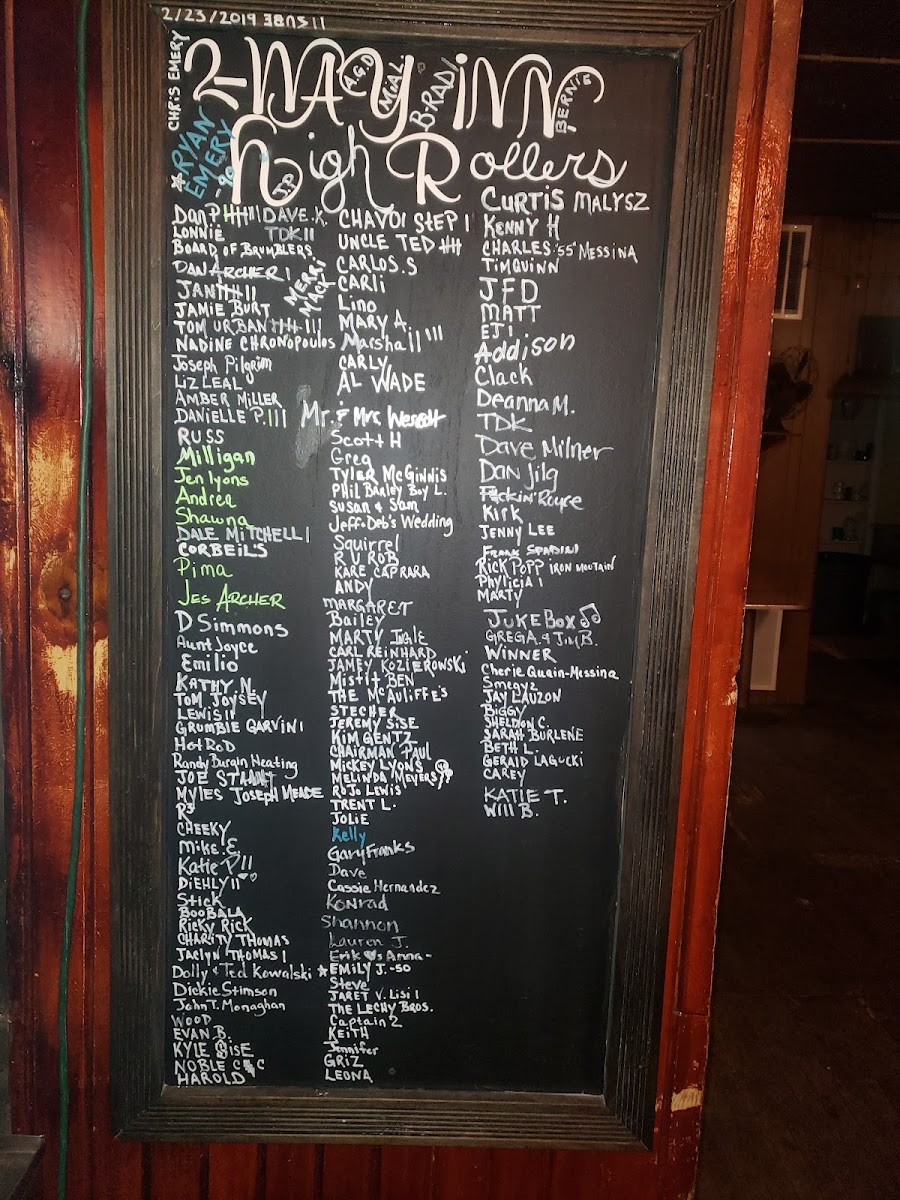 2/23/2019
CHRIS EMERY
2-WAY INN
A.G.D
BRADY
BERNIE
RYAN
EMERY
High Rollers
J.P
Dan P.
DAVE.K.
LONNIE
TDK II
BOARD OF BRUMBLERS
DAN ARCHER I
MERRI
MACK
JAN
JAMIE BURT
TOM URBAN
NADINE CHRONOPOULOS
Joseph Pilgrim
LIZ LEAL
AMBER MILLER
DANIELLE P. III
RUSS
Milligan
Jen lyons
Andrea
Shawna
DALE MITCHELL I
CORBEIL'S
Pima
JES ARCHER
D SIMMONS
Aunt Joyce
Emilio
KATHY N.
TOM JOYSEY
LEWIS II
GRUMBIE GARVIN I
HOT ROD
Randy Durgin Heating
JOE
MYLES JOSEPH MEADE
R³
CHEEKY
Mike E.
Katie P. II
DIEHLY II
Stick
BOOBALA
Ricky Rick
CHARITY THOMAS
JACLYN THOMAS I
Dolly & Ted Kowalski
Dickie Stimson
John T. Monaghan
WOOD
EVAN B.
KYLE SISE
NOBLE
HAROLD
CHAVO! STEP I
UNCLE TED
CARLOS.S
CARLI
Lino
MARY A.
Marshall III
CARLY
AL WADE
Mr. & Mrs
Scott H
Greg
TYLER McGINNIS
PHIL BARLEY BOY L.
SUSAN & SAM
Jeff & Deb's Wedding
Squirrel
R U ROB
KARE CAPRARA
ANDY
MARGARET
Bailey
MARTY
CARL REINHARD
JAMEY KOZIEROWSKI
Misfit BEN
THE McAULIFFE'S
STECHER
JEREMY SISE
KIM GENTZ
CHAIRMAN PAUL
MICKEY LYONS
MELINDA MEYERS
ROJO LEWIS
TRENT L.
JOLIE
Kelly
Gary Franks
Dave
Cassie Hernandez
Konrad
Shannon
Lauren J.
Erik ♥s Anna -
★ EMILY J. -50
Steve
JARET V. LISI I
THE LECHY BROS.
Captain 2
KEITH
Jennifer
GRIZ
LEONA
CURTIS MALYSZ
KENNY H
CHARLES "55" MESSINA
TIM QUINN
JFD
MATT
EJ I
Addison
Clack
Deanna M.
TDK
Dave Milner
Dan Jilg
F*ckin' Royce
Kirk
JENNY LEE
FRANK SPADINI
RICK POPP IRON MOUTAIN
Phylicia I
MARTY
JUKEBOX
GREG A. & JIM B.
WINNER
Cherie Quain-Messina
JAY LAUZON
BIGGY
SHELDON C.
SARAH BURLENE
BETH L.
GERALD LAGUCKI
CAREY
KATIE T.
WILL B.